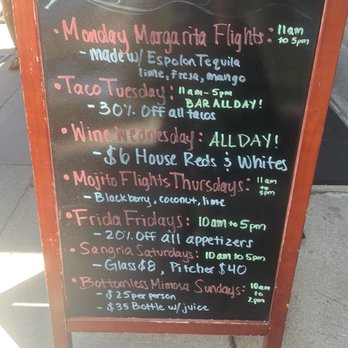 • Monday Margarita Flights • 11am to 5pm
- made w/ Espolon Tequila
lime, fresa, mango
• Taco Tuesday: 11am-5pm BAR ALL DAY!
- 30% Off all tacos
• Wine Wednesday: ALL DAY!
- $6 House Reds & Whites
• Mojito Flights Thursdays: 11am to 5pm
- Blackberry, coconut, lime
• Frida Fridays: 10am to 5pm
- 20% off all appetizers
• Sangria Saturdays: 10am to 5pm
- Glass $8, Pitcher $40
• Bottomless Mimosa Sundays: 10am to 2pm
- $25 per person
- $35 Bottle w/ juice